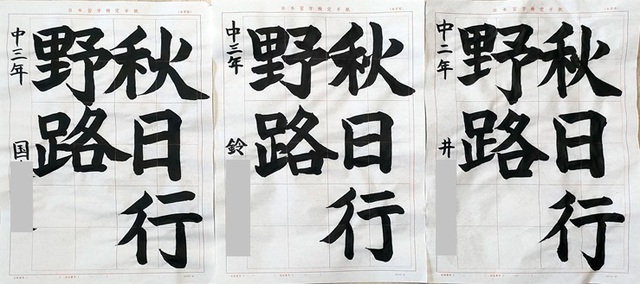 秋日行
野路
中三年 国
秋日行
野路
中三年 鈴
秋日行
野路
中二年 井